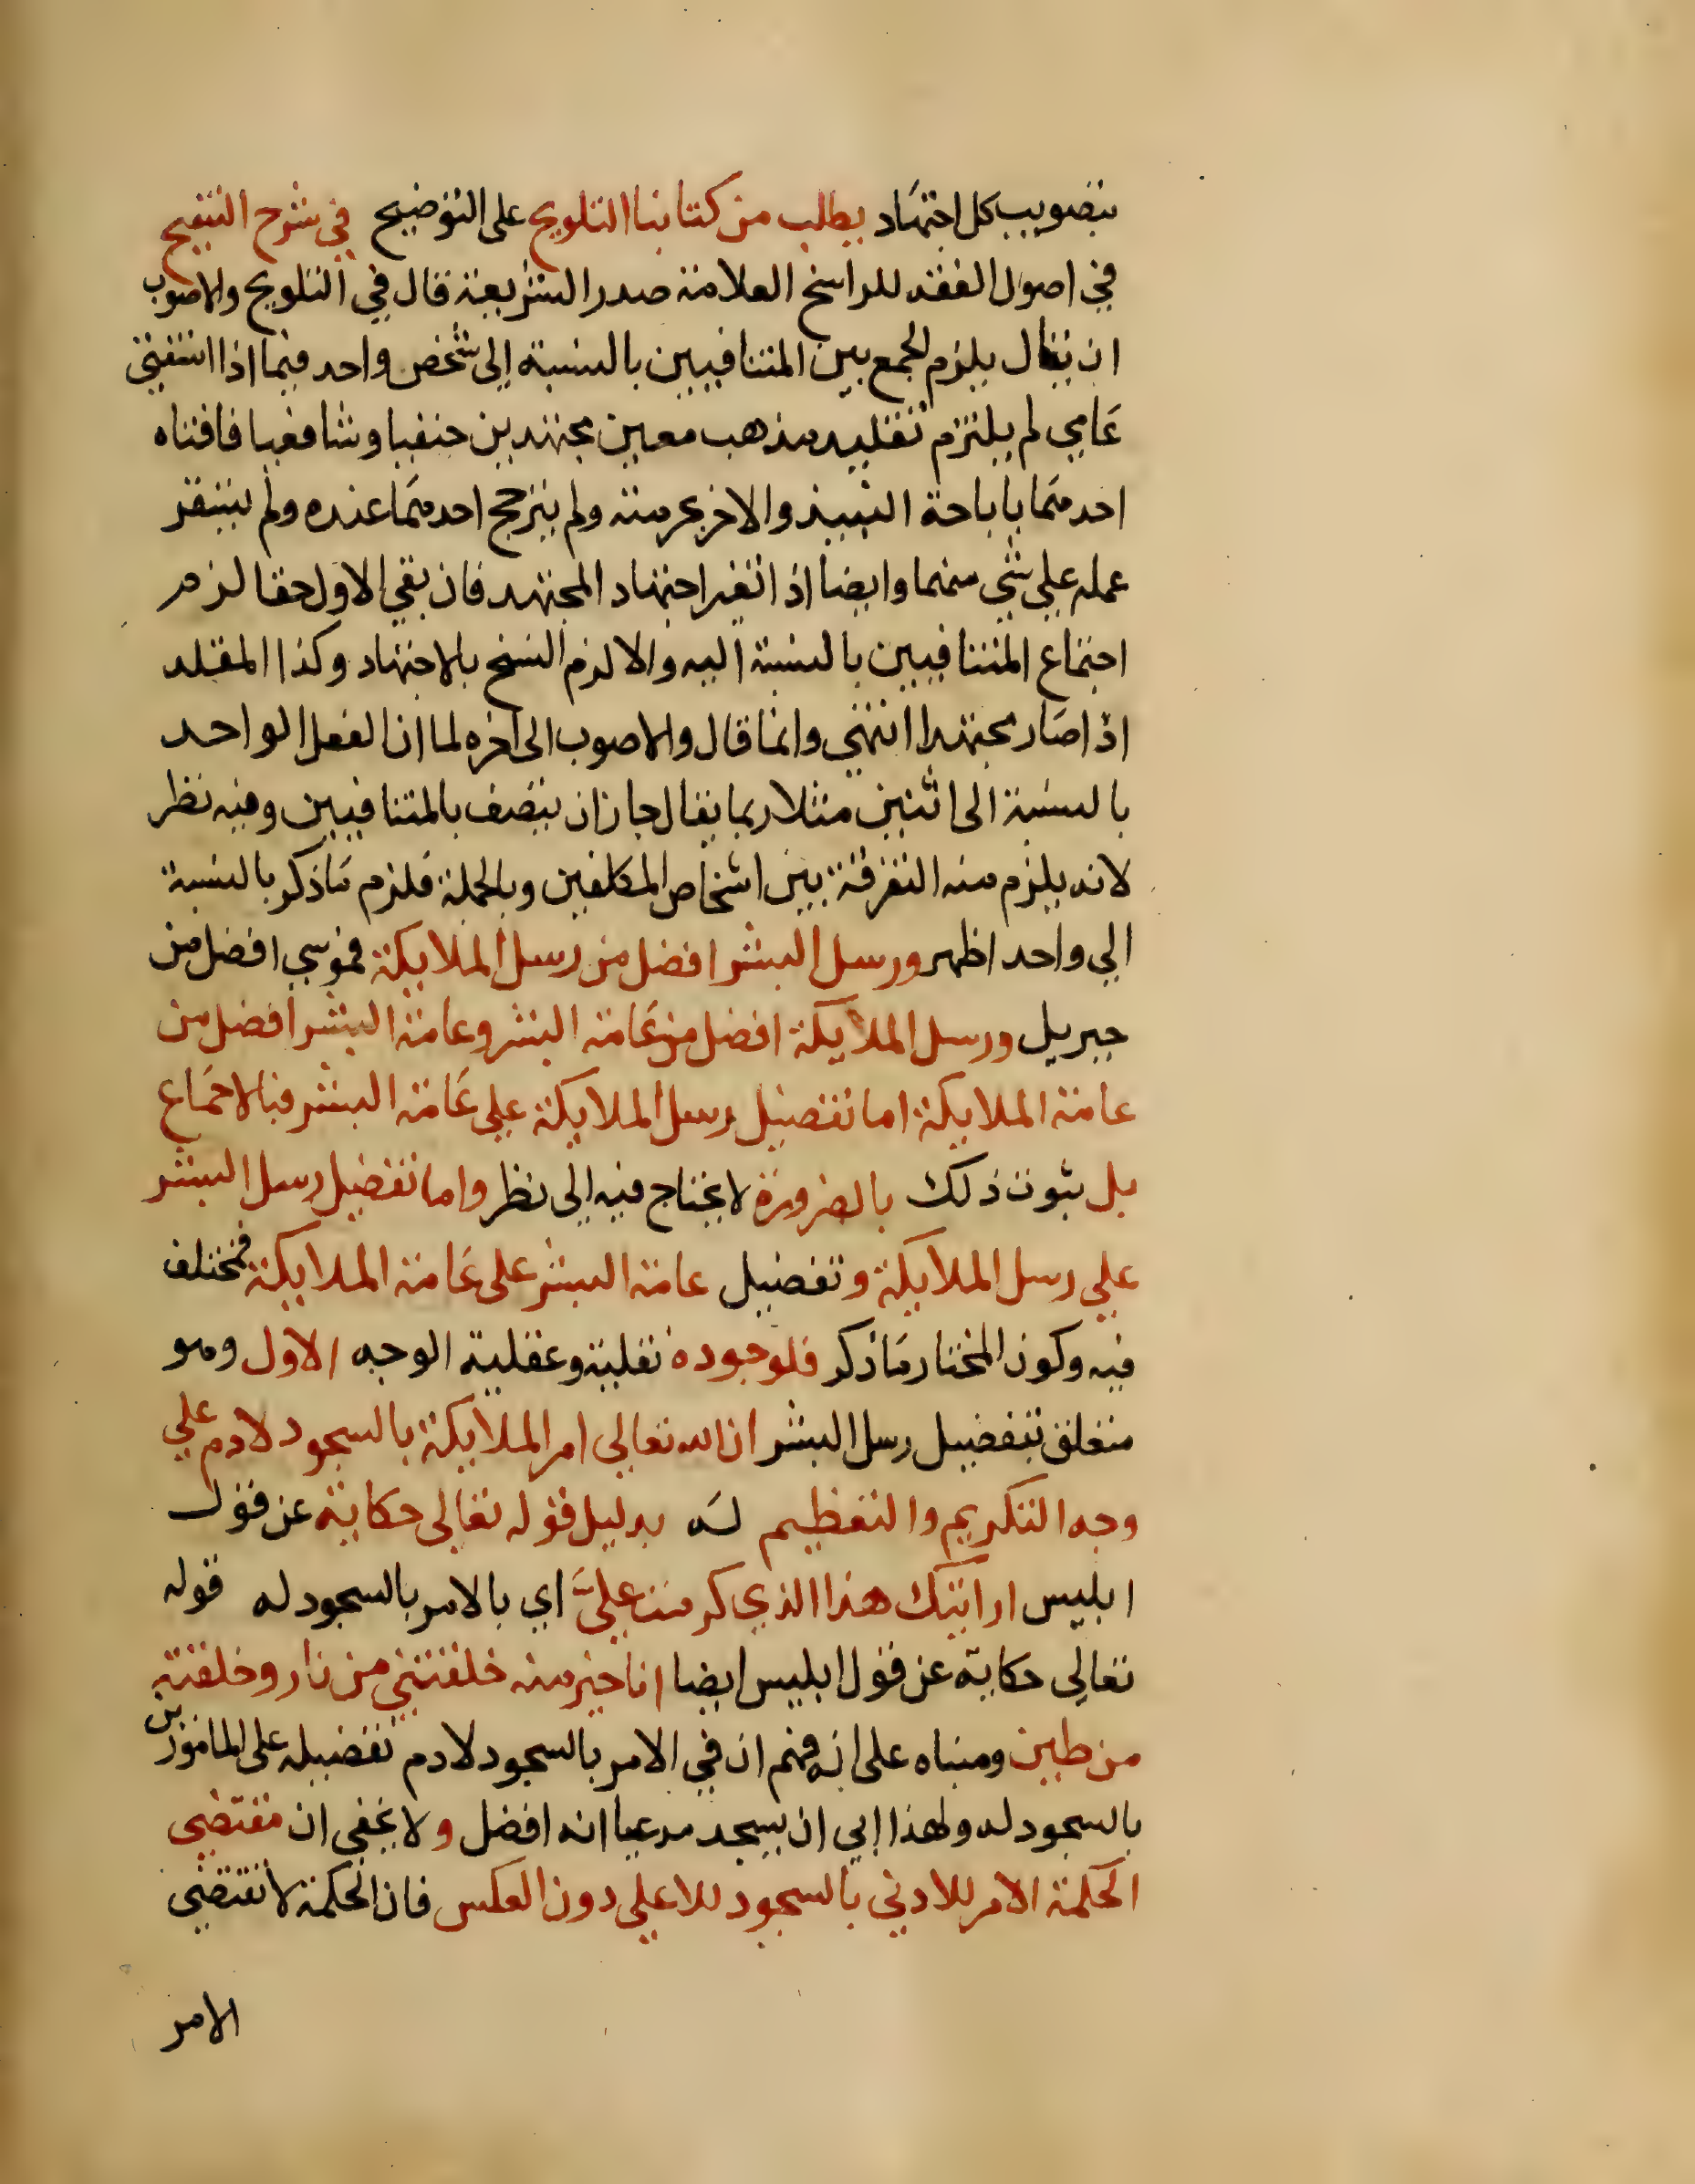 بتصويب كل اجتهاد يطلب من كتابنا التلويح على التوضيح في شرح التنقيح
في اصول الفقه للراسخ العلامة صدر الشريعة قال في التلويح والاصوب
ان يقال يلزم الجمع بين المتنافيين بالنسبة إلى شخص واحد فيما اذا استفتى
عَامي لم يلتزم تقليد مذهب معين مجتهدين حنفيا وشافعيا فافتاه
احدهما باباحة النبيذ والاخر بحرمته ولم يترجح احدهما عنده ولم يستقر
عمله علي شي منهما وايضا اذ اتغير اجتهاد المجتهد فان بقي الاول حقا لزم
اجتماع المتنافيين بالنسبة اليه والا لزم النسخ بالاجتهاد وكذا المقلد
اذا صَار مجتهدا انتهي وانما قال والاصوب الى اخره لما ان الفعل الواحد
بالنسبة الى اثنين مثلا ربما يقال جاز ان يتصف بالمتنافيين وفيه نظر
لانه يلزم منه التفرقة بين اشخاص المكلفين وبالجملة فلزم مَا ذكر بالنسبة
الي واحد اظهر ورسل البشر افضل من رسل الملايكة فموسي افضل من
جبريل ورسل الملايكة افضل من عَامة البشر وعامة البشر افضل من
عامة الملايكة اما تفضيل رسل الملايكة علي عَامة البشر فبالاجمَاع
بل بثوت ذلك بالضرورة لا يحتاج فيه إلى نظر واما تفضيل رسل البشر
علي رسل الملايكة وتفضيل عامة البشر على عَامة الملايكة فمختلف
فيه وكون المختار مَا ذكر فلوجوده نقلية وعقلية الوجه الاول وهو
متعلق بتفضيل رسل البشر ان الله تعالي امر الملايكة بالسجود لادم علي
وجه التكريم والتعظيم لهَ بدليل قوله تعالى حكاية عن قول
ابليس ارايتك هذا الذي كرمت عليَّ اي بالامر بالسجود له قوله
تعالى حكاية عن قول ابليس ايضا انا خير منه خلقتني من نار وخلقته
من طين ومبناه على انه فهم ان في الامر بالسجود لادم تفضيله على المامورين
بالسجود له ولهذا ابي ان يسجد مدعيا انه افضل ولا يخفى ان مقتضي
الحكمة الامر للادني بالسجود للاعلي دون العكس فان الحكمة لا تقتضي
الامر